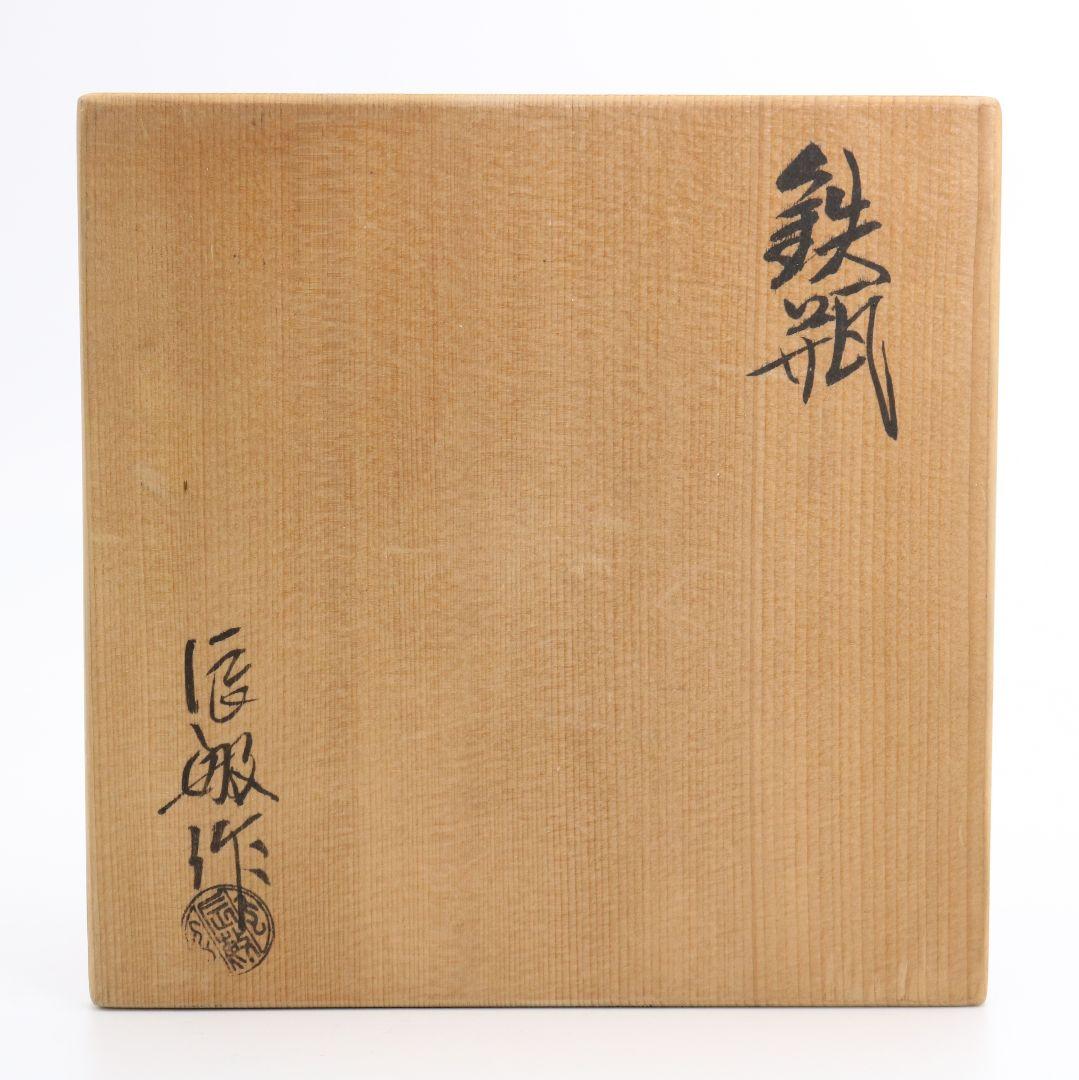 鉄瓶
辰敏作